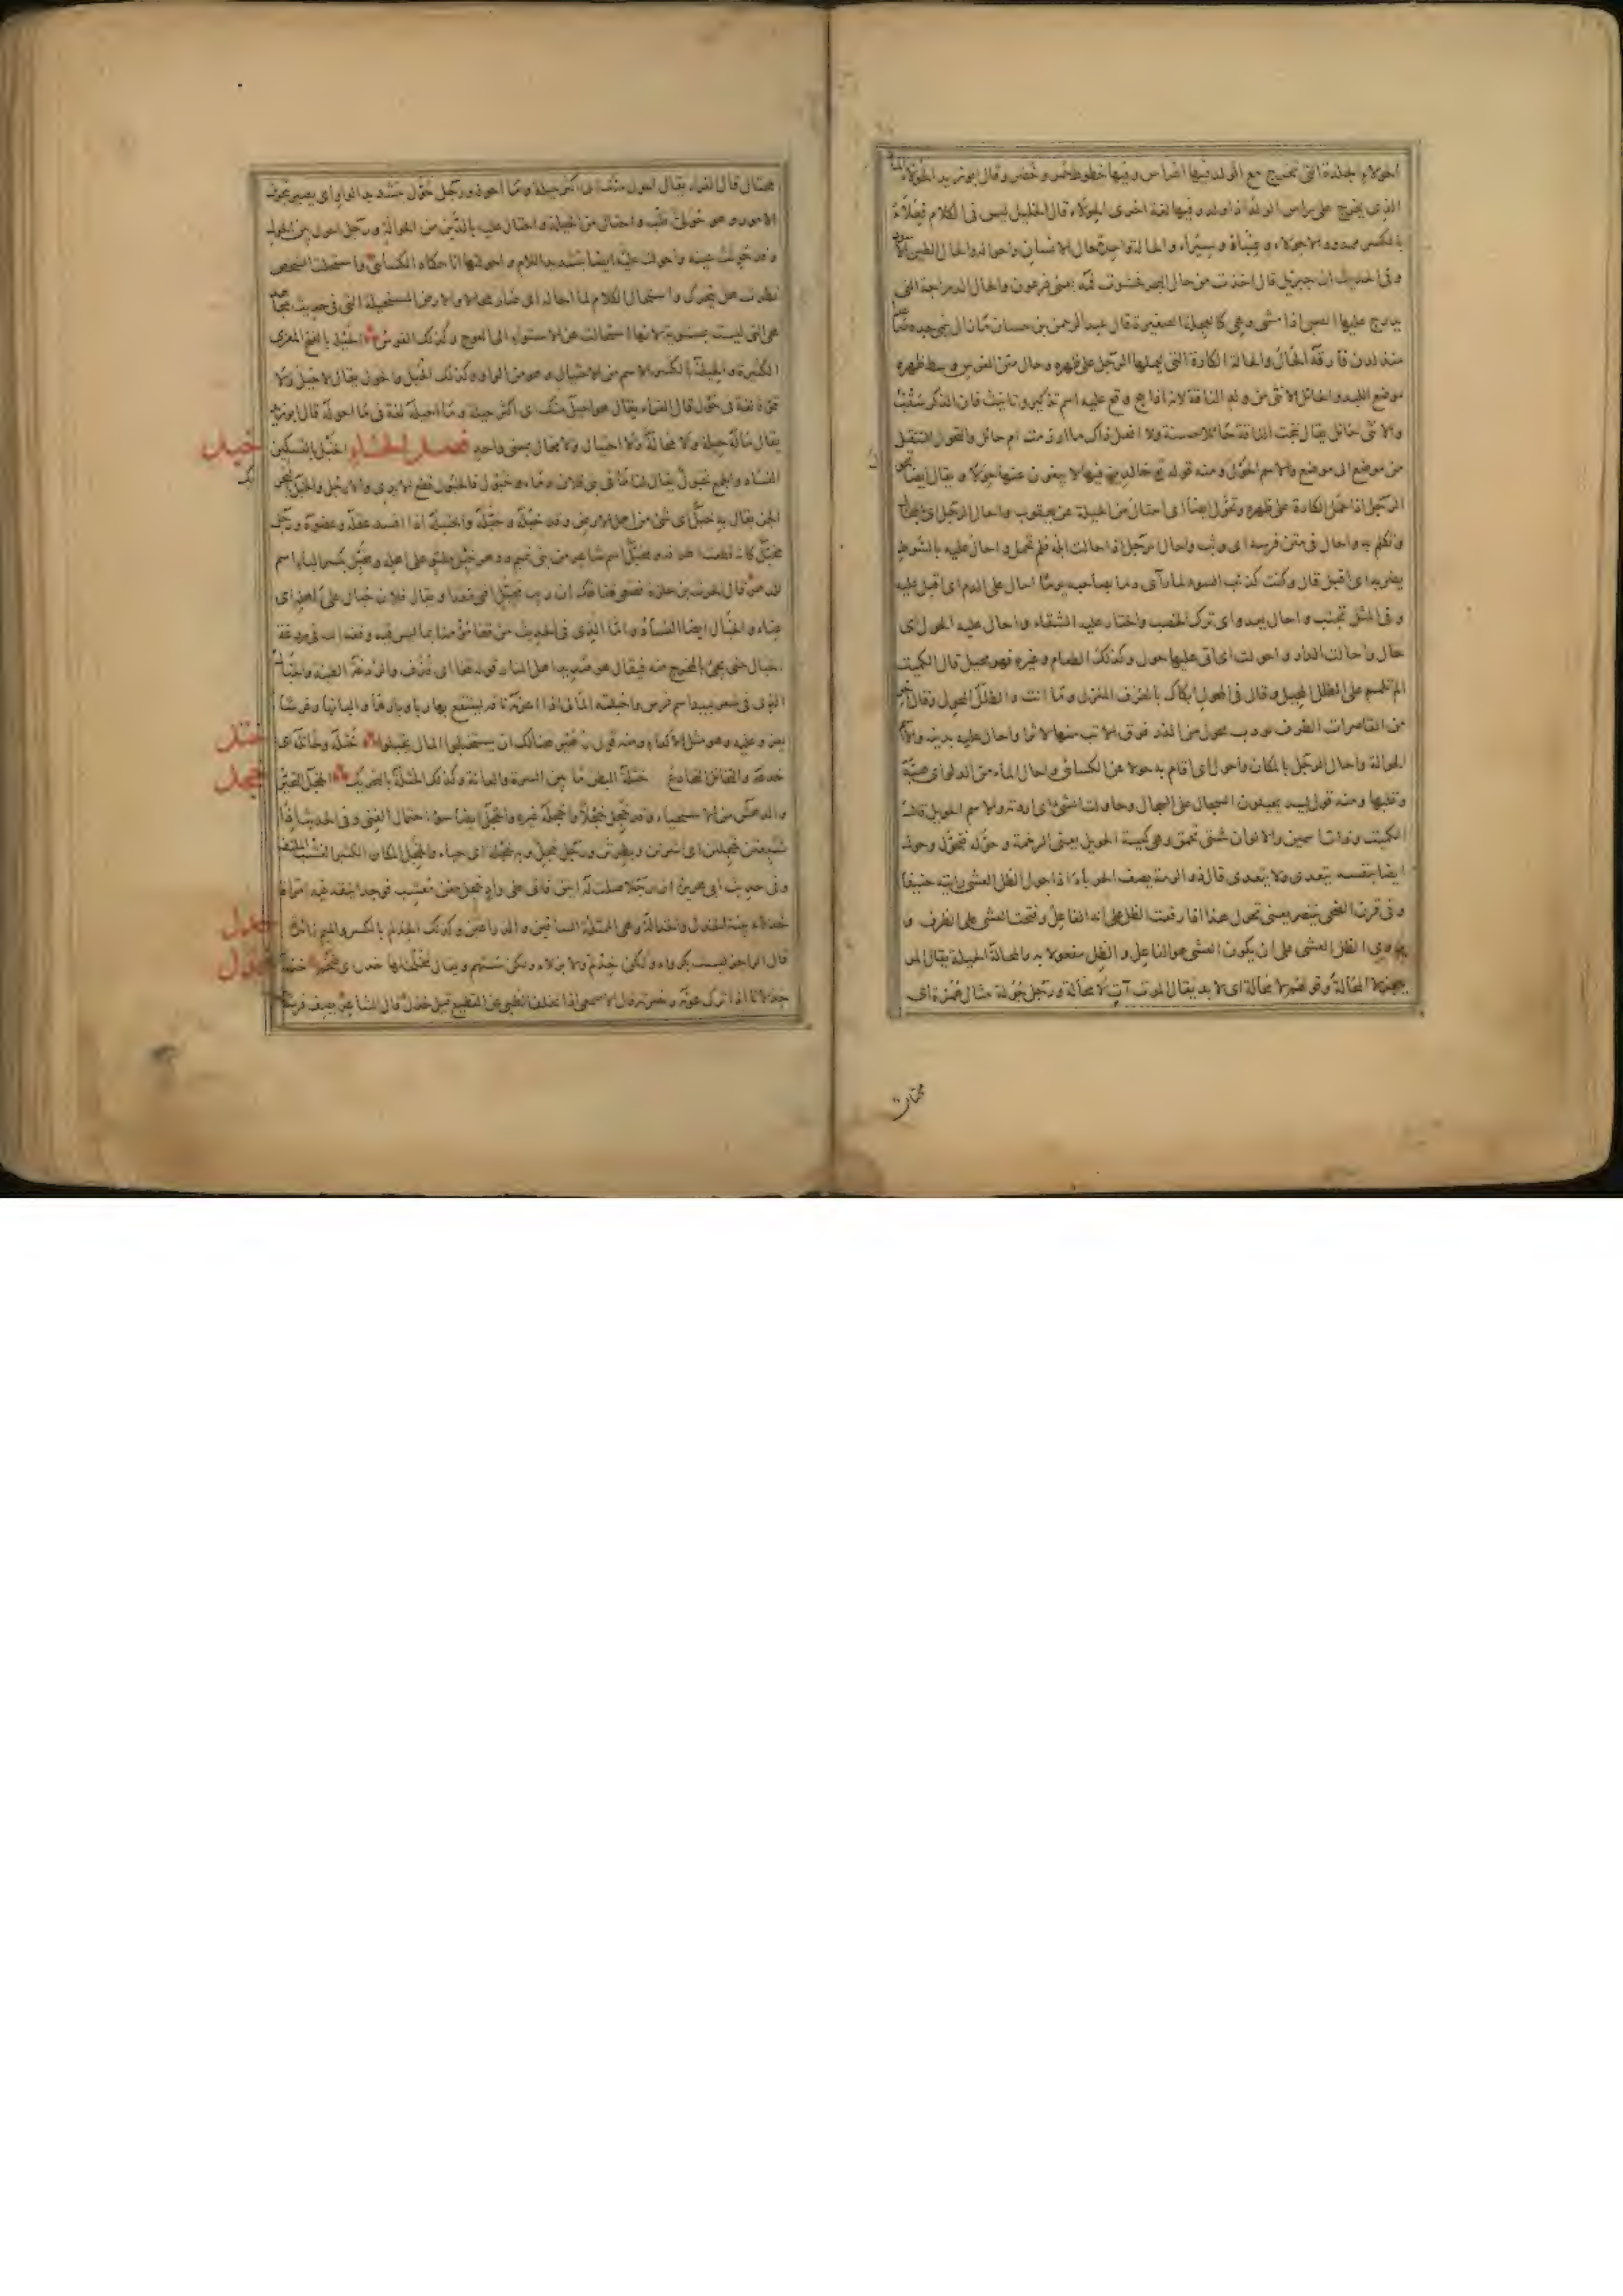 الحولاء الجلدة التى تخرج مع الولد فيها اغراس وفيها خطوط حمر وخضر وقال ابو زيد الحولاء الماء
الذى يخرج على راس الولد اذا ولد وفيها لغة اخرى الحولاء قال الخليل ليس فى الكلام فعلاء
بالكسر ممدودا الا حولاء وعنباء وسيراء والحالة واحدة حال الانسان واحواله والحال الطين
وفى الحديث ان جبريل قال اخذت من حال البحر فحشوت فمه يعنى فرعون والحال الدراجة التى
يدرج عليها الصبى اذا مشى وهى كالعجلة الصغيرة قال عبد الرحمن بن حسان ما زال ينمى جده صاعدا
منذ لدن فارقه الحال والحال الكارة التى يحملها الرجل على ظهره وحال متن الفرس وسط ظهره
موضع اللبد والحائل الانثى من ولد الناقة لانه اذا نتج ووقع عليه اسم تذكير وتانيث فان الذكر سقب
والانثى حائل يقال نتجت الناقة حائلا حسنة ولا افعل ذاك ما ارزمت ام حائل والتحول التنقل
من موضع الى موضع والاسم الحول ومنه قوله تع خالدين فيها لا يبغون عنها حولا ويقال ايضا تحول
الرجل اذا حمل الكارة على ظهره وتحول ايضا اى احتال من الحيلة عن يعقوب واحال الرجل اى
وتكلم به واحال فى متن فرسه اى وثب واحال الرجل اذا حالت ابله فلم تحمل واحال عليه بالسوط
يضربه اى اقبل قال وكنت كذئب السوء لما رآى دما بصاحبه يوما احال على الدم اى اقبل عليه
وفى المثل تجنب واحال يعدو اى ترك الخصب واختار عليه الشقاء واحال عليه الحول اى
حال واحالت الدار واحولت اى اتى عليها حول وكذلك الطعام وغيره فهو محيل قال الكميت
الم تلمم على الطلل المحيل وقال فى المحول ابكاك بالعرف المنزل وما انت والطلل المحول وقال آخر
من القاصرات الطرف لو دب محول من الذر فوق الاتب منها لاثرا واحال عليه بدينه والاسم
الحوالة واحال الرجل بالمكان واحول اى اقام به حولا عن الكسائى واحال الماء من الدلو اى صبه
وقلبها ومنه قول لبيد يحيلون السجال على السجال وحاولت الشئ اى اردته والاسم الحويل قال
الكميت وذات اسمين والالوان شتى تحمق وهى كيسة الحويل يعنى الرخمة وحوله فتحول وحول
ايضا بنفسه يتعدى ولا يتعدى قال ذو الرمة يصف الحرباء اذا حول الظل العشى رايته حنيفا
وفى قرن الضحى يتنصر يعنى تحول هذا اذا رفعت الظل على انه الفاعل وفتحت العشى على الظرف و
يروى الظل العشى على ان يكون العشى هو الفاعل والظل مفعولا به والمحالة الحيلة يقال المرء
يعجز لا المحالة وقولهم لا محالة اى لا بد يقال الموت آت لا محالة ورجل حولة مثال همزة اى
محتال
محتال قال الفراء يقال هو احول منك اى اكثر حيلة وما احوله ورجل حول بتشديد الواو اى بصير بتحويل
الامور وهو حول قلب واحتال من الحيلة واحتال عليه بالدين من الحوالة ورجل احول بين الحول
وقد حولت عينه واحولت عينه ايضا بتشديد اللام واحولتها انا حكاه الكسائى واستحلت الشخص
نظرت هل يتحرك واستحال الكلام لما احاله اى صار محالا والارض المستحيلة التى فى حديث مجاهد
هى التى ليست بمستوية لانها استحالت عن الاستواء الى العوج وكذلك القوس الحيلة بالفتح المعزى
الكثيرة والحيلة بالكسر الاسم من الاحتيال وهو من الواو وكذلك الحيل والحول يقال لا حيل ولا
قوة لغة فى حول قال الفراء يقال هو احيل منك اى اكثر حيلة وما احيله لغة فى ما احوله قال ابو زيد
يقال ماله حيلة ولا محالة ولا احتيال ولا محال بمعنى واحد فصل الخاء الخبل بالتسكين
خبل
الفساد والجمع خبول يقال لنا فى بنى فلان دماء وخبول فالخبول قطع الايدى والارجل والخبل بالتحريك
الجن يقال به خبل اى شئ من اهل الارض وقد خبله وخبله واختبله اذا افسد عقله وعضوه ورجل
مخبل كانه قطعت اطرافه ومخبل اسم شاعر من بنى تميم ودهر خبل ملتو على اهله ومخبل بكسر الباء اسم
للدهر قال الحرث بن حلزة فضعى قناعك ان ريب مخبل افنى معدا ويقال فلان خبال على اهله اى
عناء والخبال ايضا الفساد واما الذى فى الحديث من قفا مؤمنا بما ليس فيه وقفه الله فى ردغة
الخبال حتى يجئ بالمخرج منه فيقال هو صديد اهل النار قوله قفا اى قذف والردغة الطينة والخبال
الذى فى شعر لبيد اسم فرس واخبلته المال اذا اعرته ناقة لينتفع بها وباوبارها والبانها او فرسا
يغزو عليه وهو مثل الاكفاء ومنه قول زهير هنالك ان يستخبلوا المال يخبلوا ختله وخاتله اى
ختل
خدعه والتخاتل التخادع خثلة البطن ما بين السرة والعانة وكذلك الخثلة بالتحريك الخجل التحير
خجل
والدهش من الاستحياء وقد خجل خجلا واخجله غيره والخجل ايضا سوء احتمال الغنى وفى الحديث اذا
شبعتن خجلتن اى اشرتن وبطرتن ورجل خجل وبه خجلة اى حياء والخجل المكان الكثير العشب الملتف
وفى حديث ابى هريرة ان رجلا ضلت له اينق فاتى على واد خجل مغن معشب فوجد اينقه فيه امراة
خدلاء بينة الخدل والخدالة وهى الممتلئة الساقين والذراعين وكذلك الخدلم بالكسر والميم زائدة
خدل
قال الراجز ليست بكرواء ولكن خدلم ولا بزلاء ولكن ستهم ويقال مخلخلها خدل اى ضخم خذله
خذل
خذلانا اذا ترك عونه ونصرته قال الاصمعى اذا تخلف الظبى عن القطيع قيل خذل قال الشاعر يصف فرسا